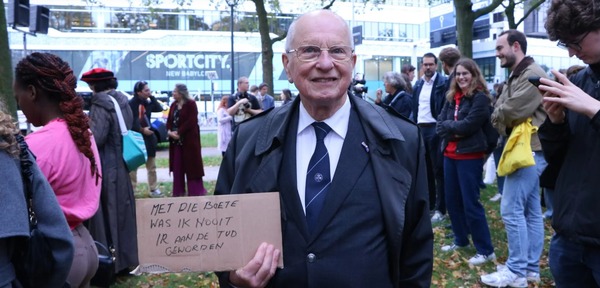 SPORTCITY
NEW BABYLON
MET DIE BOETE
WAS IK NOOIT
IR AAN DE TUD
GEWORDEN